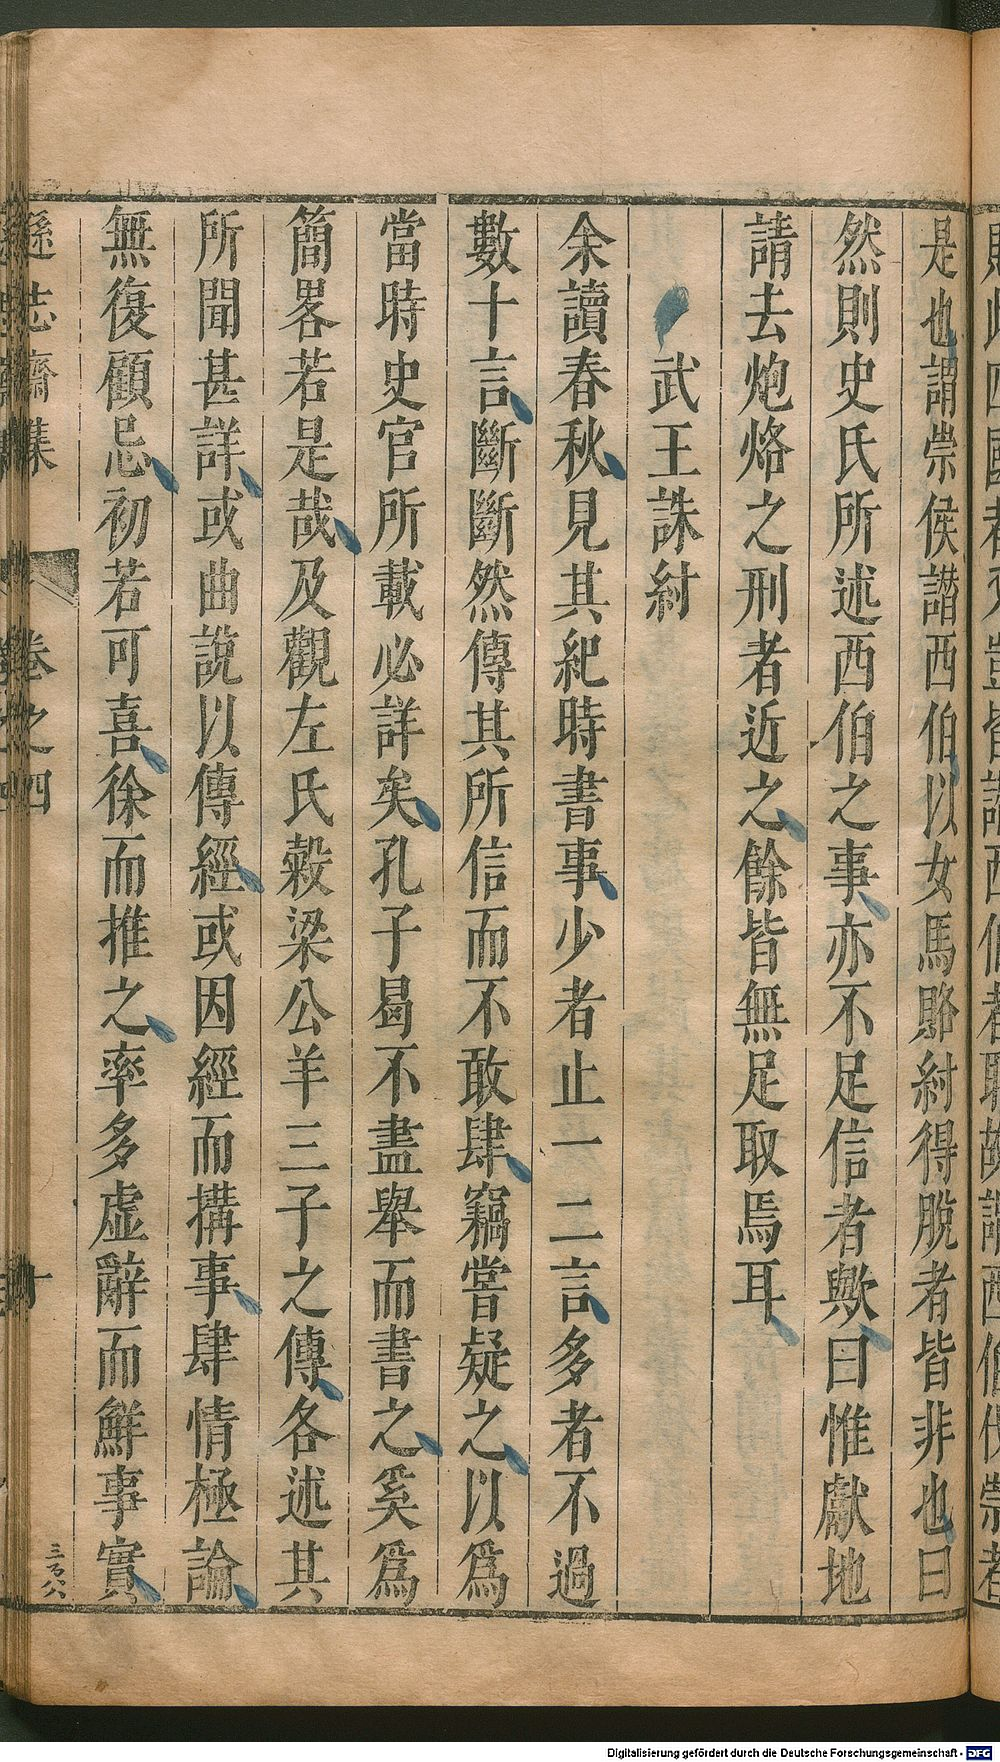 是也謂崇侯譖西伯以女馬賂紂得脫者皆非也曰
然則史氏所述西伯之事亦不足信者歟曰惟獻地
請去炮烙之刑者近之餘皆無足取焉耳
武王誅紂
余讀春秋見其紀時書事少者止一二言多者不過
數十言斷斷然傳其所信而不敢肆竊嘗疑之以爲
當時史官所載必詳矣孔子曷不盡舉而書之奚爲
簡畧若是哉及觀左氏穀梁公羊三子之傳各述其
所聞甚詳或曲說以傳經或因經而搆事肆情極論
無復顧忌初若可喜徐而推之率多虛辭而鮮事實
遜志齋集
卷之四
十
三百八
Digitalisierung gefördert durch die Deutsche Forschungsgemeinschaft - DFG